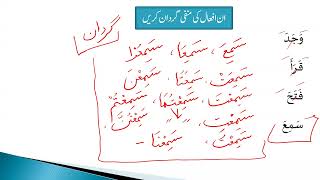 ان افعال کی منفی گردان کریں
گردان
وَجَدَ
سَمِعَ، سَمِعَا، سَمِعُوْا
قَرَأَ
سَمِعَتْ، سَمِعَتَا، سَمِعْنَ
فَتَحَ
سَمِعْتَ، سَمِعْتُمَا، سَمِعْتُمْ
سَمِعْتِ، " سَمِعْتُنَّ
سَمِعَ
سَمِعْتُ، سَمِعْنَا -